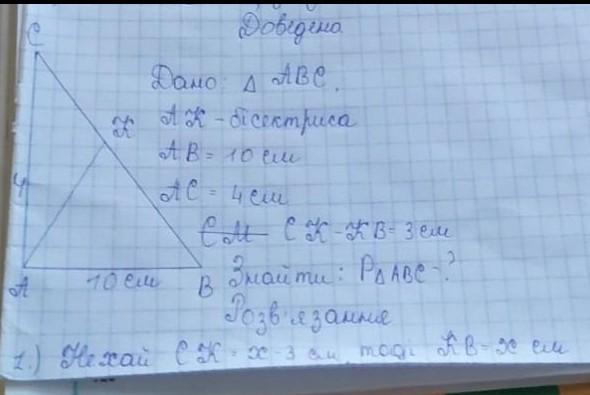 Доведено
Дано: Δ ABC.
AK - бісектриса
AB = 10 см
AC = 4 см
CM CK - KB = 3 см
Знайти: PΔABC - ?
Розв'язання
1.) Нехай CK = x - 3 см, тоді KB = x см
C
K
4
A
10 см
B